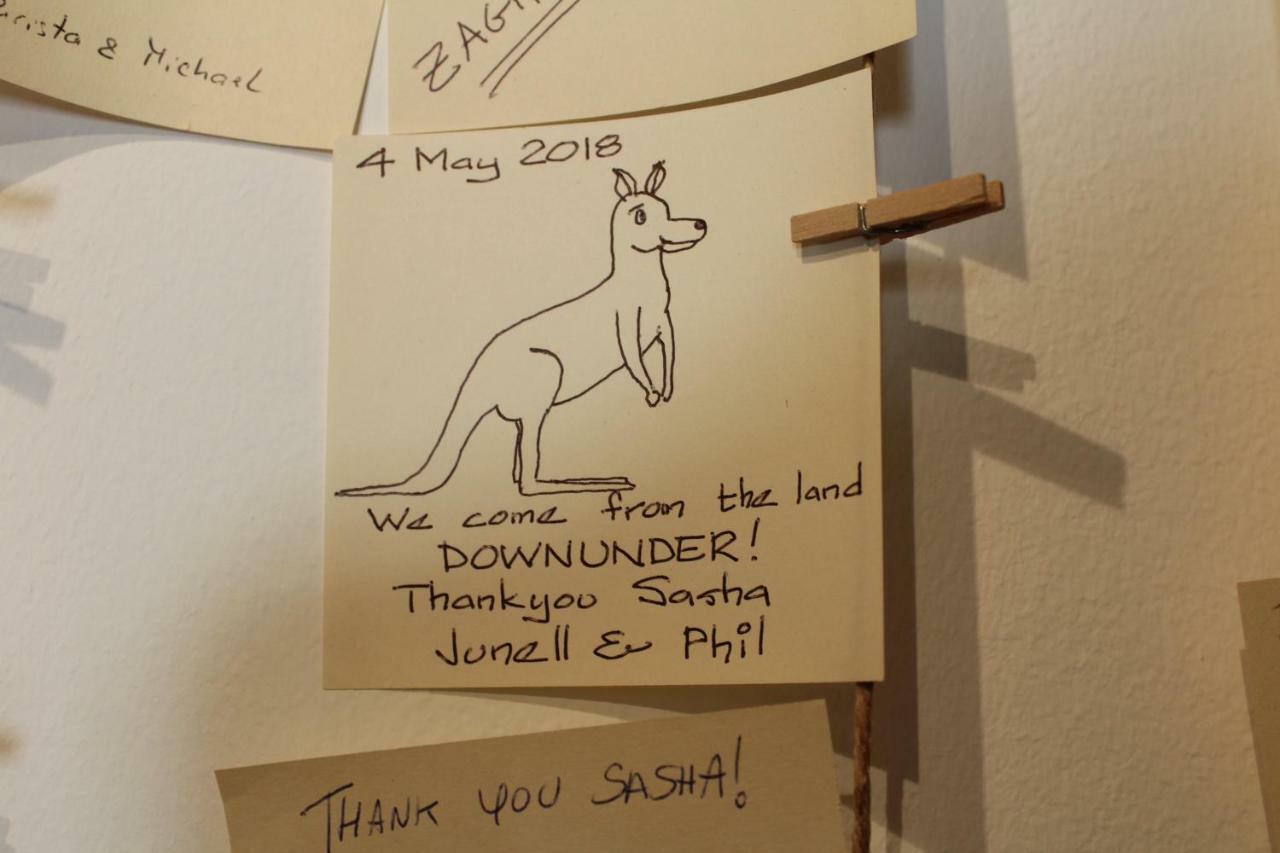 & Michael
4 May 2018
We come from the land
DOWNUNDER!
Thankyou Sasha
Junell & Phil
THANK YOU SASHA!